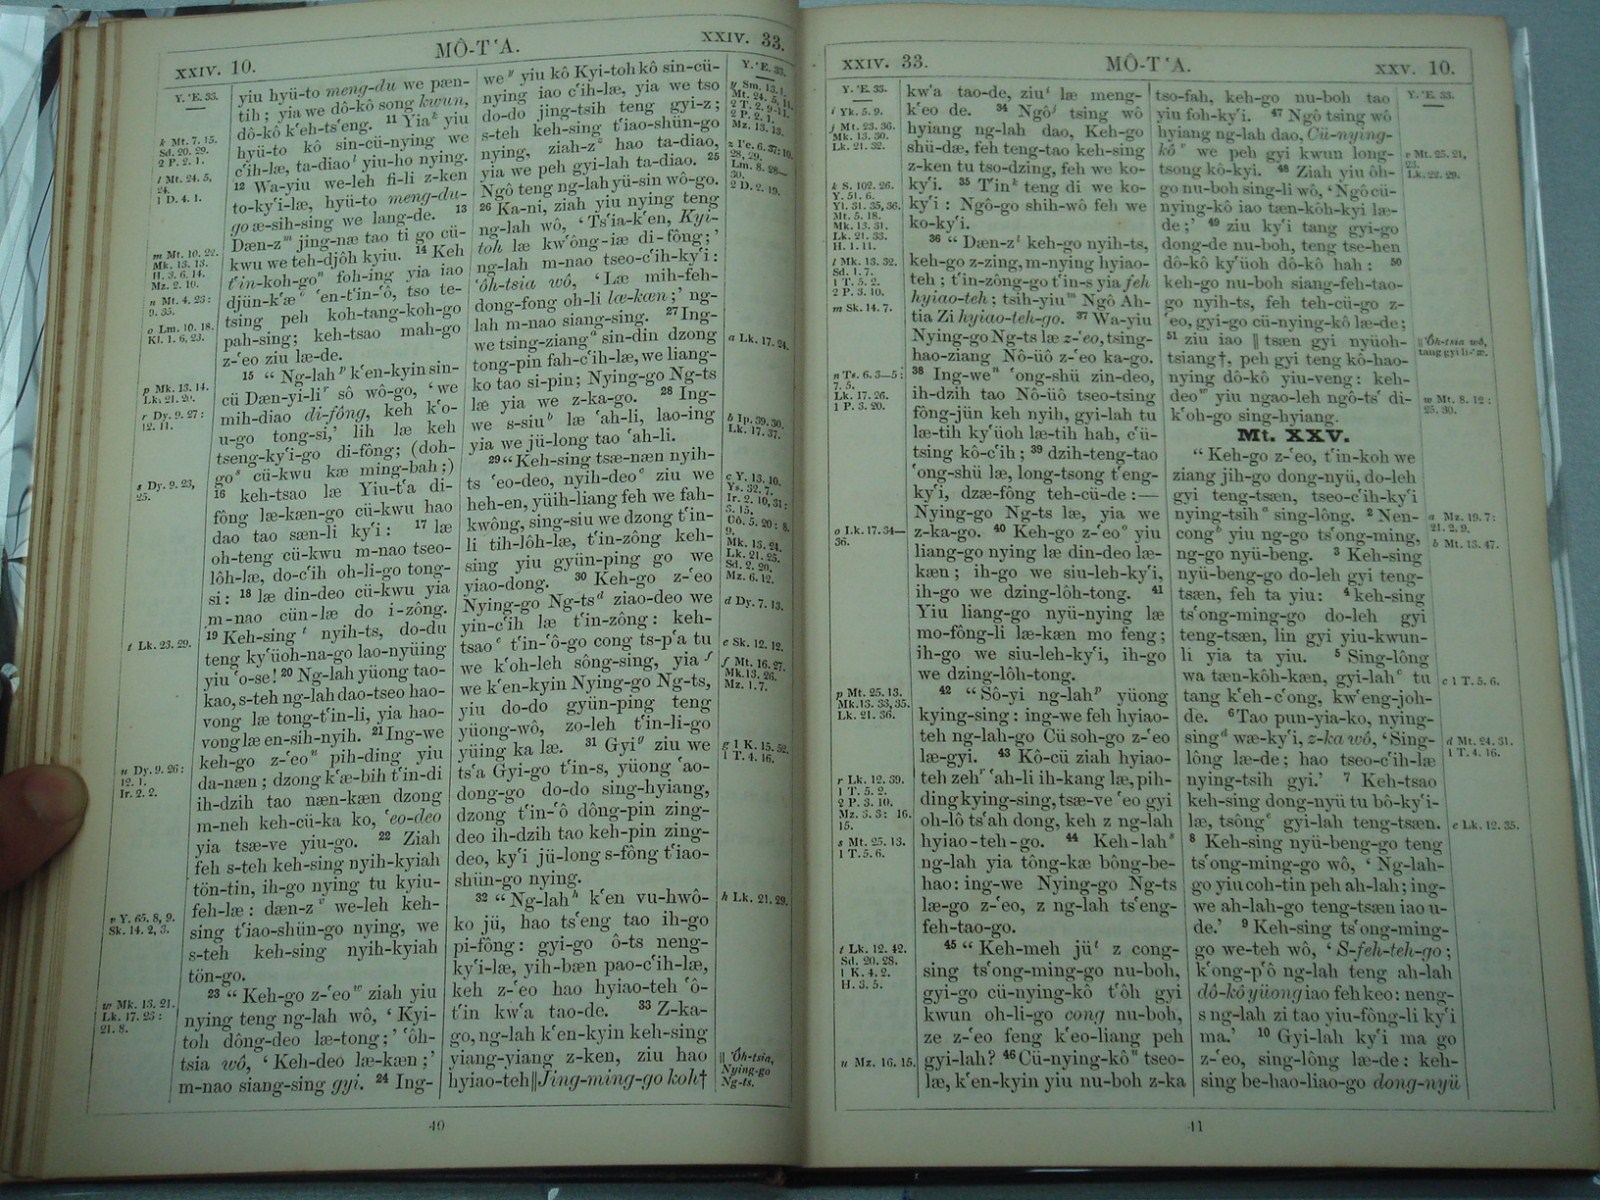 XXIV. 10.
MÔ-TʻA.
XXIV. 33.
Y. ʻE. 33.
k Mt. 7. 15.
Sd. 20. 29.
2 P. 2. 1.
l Mt. 24. 5,
24.
1 D. 4. 1.
m Mt. 10. 22.
Mk. 13. 13.
H. 3. 6. 14.
Mz. 2. 10.
n Mt. 4. 23:
9. 35.
o Lm. 10. 18.
Kl. 1. 6, 23.
p Mk. 13. 14.
Lk. 21. 20.
r Dy. 9. 27:
12. 11.
s Dy. 9. 23,
25.
t Lk. 23. 29.
u Dy. 9. 26:
12. 1.
Ir. 2. 2.
v Y. 65. 8, 9.
Sk. 14. 2, 3.
w Mk. 13. 21.
Lk. 17. 23:
21. 8.
yiu hyü-to meng-du we pæn-
tih; yia we dô-kô song kwun,
dô-kô kʻeh-tsʻeng. 11 Yia k yiu
hyü-to kô sin-cü-nying we
cʻih-læ, ta-diao l yiu-ho nying.
12 Wa-yiu we-leh fi-li z-ken
to-kyʻi-læ, hyü-to meng-du-
go æ-sih-sing we lang-de. 13
Dæn-z m jing-næ tao ti go cü-
kwu we teh-djôh kyiu. 14 Keh
tʻin-koh-go n foh-ing yia iao
djün-kʻæ o ʻen-tʻin-ʻô, tso te-
tsing peh koh-tang-koh-go
pah-sing; keh-tsao mah-go
z-ʻeo ziu læ-de.
15 “ Ng-lah p kʻen-kyin sin-
cü Dæn-yi-li r sô wô-go, ‘we
mih-diao di-fông, keh kʻo-
u-go tong-si,’ lih læ keh
tseng-kyʻi-go di-fông; (doh-
go s cü-kwu kæ ming-bah;)
16 keh-tsao læ Yiu-tʻa di-
fông læ-kæn-go cü-kwu hao
dao tao sæn-li kyʻi: 17 læ
oh-teng cü-kwu m-nao tseo-
lôh-læ, do-cʻih oh-li-go tong-
si: 18 læ din-deo cü-kwu yia
m-nao cün-læ do i-zông.
19 Keh-sing t nyih-ts, do-du
teng kyʻüoh-na-go lao-nyüing
yiu ʻo-se! 20 Ng-lah yüong tao-
kao, s-teh ng-lah dao-tseo hao-
vong læ tong-tʻin-li, yia hao-
vong læ en-sih-nyih. 21 Ing-we
keh-go z-ʻeo u pih-ding yiu
da-næn; dzong kʻæ-bih tʻin-di
ih-dzih tao næn-kæn dzong
m-neh keh-cü-ka ko, ʻeo-deo
yia tsæ-ve yiu-go. 22 Ziah
feh s-teh keh-sing nyih-kyiah
tön-tin, ih-go nying tu kyiu-
feh-læ: dæn-z v we-leh keh-
sing tʻiao-shün-go nying, we
s-teh keh-sing nyih-kyiah
tön-go.
23 “ Keh-go z-ʻeo w ziah yiu
nying teng ng-lah wô, ‘ Kyi-
toh dông-deo læ-tong;’ ʻôh-
tsia wô, ‘ Keh-deo læ-kæn;’
m-nao siang-sing gyi. 24 Ing-
we y yiu kô Kyi-toh kô sin-cü-
nying iao cʻih-læ, yia we tso
do-do jing-tsih teng gyi-z;
s-teh keh-sing tʻiao-shün-go
nying, ziah-z z hao ta-diao,
yia we peh gyi-lah ta-diao. 25
Ngô teng ng-lah yü-sin wô-go.
26 Ka-ni, ziah yiu nying teng
ng-lah wô, ‘Tsʻia-kʻen, Kyi-
toh læ kwʻông-iæ di-fông;’
ng-lah m-nao tseo-cʻih-kyʻi:
ʻôh-tsia wô, ‘Læ mih-feh-
dong-fong oh-li læ-kæn;’ ng-
lah m-nao siang-sing. 27 Ing-
we tsing-ziang a sin-din dzong
tong-pin fah-cʻih-læ, we liang-
ko tao si-pin; Nying-go Ng-ts
læ yia we z-ka-go. 28 Ing-
we s-siu b læ ʻah-li, lao-ing
yia we jü-long tao ʻah-li.
29 “Keh-sing tsæ-næn nyih-
ts ʻeo-deo, nyih-deo c ziu we
heh-en, yüih-liang feh we fah-
kwông, sing-siu we dzong tʻin-
li tih-lôh-læ, tʻin-zông keh-
sing yiu gyün-ping go we
yiao-dong. 30 Keh-go z-ʻeo
Nying-go Ng-ts d ziao-deo we
yin-cʻih læ tʻin-zông: keh-
tsao e tʻin-ʻô-go cong ts-pʻa tu
we kʻoh-leh sông-sing, yia f
we kʻen-kyin Nying-go Ng-ts,
yiu do-do gyün-ping teng
yüong-wô, zo-leh tʻin-li-go
yüing ka læ. 31 Gyi g ziu we
tsʻa Gyi-go tʻin-s, yüong ʻao-
dong-go do-do sing-hyiang,
dzong tʻin-ʻô dông-pin zing-
deo ih-dzih tao keh-pin zing-
deo, kyʻi jü-long s-fông tʻiao-
shün-go nying.
32 “Ng-lah h kʻen vu-hwô-
ko jü, hao tsʻeng tao ih-go
pi-fông: gyi-go ô-ts neng-
kyʻi-læ, yih-bæn pao-cʻih-læ,
keh z-ʻeo hao hyiao-teh ʻô-
tʻin kwʻa tao-de. 33 Z-ka-
go, ng-lah kʻen-kyin keh-sing
yiang-yiang z-ken, ziu hao
hyiao-teh‖Jing-ming-go koh†
Y. ʻE. 33.
y Sm. 13. 1.
Mt. 24. 5, 11.
2 T. 2. 9-11.
2 P. 2. 1.
Mz. 13. 13.
28, 29.
Lm. 8. 28—
30.
2 D. 2. 19.
a Lk. 17. 24.
b Ip. 39. 30.
Lk. 17. 37.
c Y. 13. 10.
Ys. 32. 7.
Ir. 2. 10, 31:
3. 15.
Üô. 5. 20: 8.
9.
Mk. 13. 24.
Lk. 21. 25.
Sd. 2. 20.
Mz. 6. 12.
d Dy. 7. 13.
e Sk. 12. 12.
f Mt. 16. 27.
Mk. 13. 26.
Mz. 1. 7.
g 1 K. 15. 52.
1 T. 4. 16.
h Lk. 21. 29.
‖ ʻÔh-tsia,
Nying-go
Ng-ts.
40
XXIV. 33.
MÔ-TʻA.
XXV. 10.
Y. ʻE. 33.
i Yk. 5. 9.
j Mt. 23. 36.
Mk. 13. 30.
Lk. 21. 32.
k S. 102. 26.
Y. 51. 6.
Yl. 31. 35, 36.
Mt. 5. 18.
Mk. 13. 31.
Lk. 21. 33.
H. 1. 11.
l Mk. 13. 32.
Sd. 1. 7.
1 T. 5. 2.
2 P. 3. 10.
m Sk. 14. 7.
n Ts. 6. 3—5:
7. 5.
Lk. 17. 26.
1 P. 3. 20.
o Lk. 17. 34—
36.
p Mt. 25. 13.
Mk. 13. 33, 35.
Lk. 21. 36.
r Lk. 12. 39.
1 T. 5. 2.
2 P. 3. 10.
Mz. 3. 3: 16.
15.
s Mt. 25. 13.
1 T. 5. 6.
t Lk. 12. 42.
Sd. 20. 28.
1 K. 4. 2.
H. 3. 5.
u Mz. 16. 15.
kwʻa tao-de, ziu i læ meng-
kʻeo de. 34 Ngô j tsing wô
hyiang ng-lah dao, Keh-go
shü-dæ, feh teng-tao keh-sing
z-ken tu tso-dzing, feh we ko-
kyʻi. 35 Tʻin k teng di we ko-
kyʻi: Ngô-go shih-wô feh we
ko-kyʻi.
36 “ Dæn-z l keh-go nyih-ts,
keh-go z-zing, m-nying hyiao-
teh; tʻin-zông-go tʻin-s yia feh
hyiao-teh; tsih-yiu m Ngô Ah-
tia Zi hyiao-teh-go. 37 Wa-yiu
Nying-go Ng-ts læ z-ʻeo, tsing-
hao-ziang Nô-üô z-ʻeo ka-go.
38 Ing-we n ʻong-shü zin-deo,
ih-dzih tao Nô-üô tseo-tsing
fông-jün keh nyih, gyi-lah tu
læ-tih kyʻüoh læ-tih hah, cʻü-
tsing kô-cʻih; 39 dzih-teng-tao
ʻong-shü læ, long-tsong tʻeng-
kyʻi, dzæ-fông teh-cü-de:—
Nying-go Ng-ts læ, yia we
z-ka-go. 40 Keh-go z-ʻeo o yiu
liang-go nying læ din-deo læ-
kæn; ih-go we siu-leh-kyʻi,
ih-go we dzing-lôh-tong. 41
Yiu liang-go nyü-nying læ
mo-fông-li læ-kæn mo feng;
ih-go we siu-leh-kyʻi, ih-go
we dzing-lôh-tong.
42 “ Sô-yi ng-lah p yüong
kying-sing: ing-we feh hyiao-
teh ng-lah-go Cü soh-go z-ʻeo
læ-gyi. 43 Kô-cü ziah hyiao-
teh zeh r ʻah-li ih-kang læ, pih-
ding kying-sing, tsæ-ve ʻeo gyi
oh-lô tsʻah dong, keh z ng-lah
hyiao-teh-go. 44 Keh-lah s
ng-lah yia tông-kæ bông-be-
hao: ing-we Nying-go Ng-ts
læ-go z-ʻeo, z ng-lah tsʻeng-
feh-tao-go.
45 “ Keh-meh jü t z cong-
sing tsʻong-ming-go nu-boh,
gyi-go cü-nying-kô tʻôh gyi
kwun oh-li-go cong nu-boh,
ze z-ʻeo feng kʻeo-liang peh
gyi-lah? 46 Cü-nying-kô u tseo-
læ, kʻen-kyin yiu nu-boh z-ka
tso-fah, keh-go nu-boh tao
yiu foh-kyʻi. 47 Ngô tsing wô
hyiang ng-lah dao, Cü-nying-
kô v we peh gyi kwun long-
tsong kô-kyi. 48 Ziah yiu ôh-
go nu-boh sing-li wô, ‘Ngô cü-
nying-kô iao tæn-kôh-kyi læ-
de;’ 49 ziu kyʻi tang gyi-go
dong-de nu-boh, teng tse-hen
dô-kô kyʻüoh dô-kô hah: 50
keh-go nu-boh siang-feh-tao-
go nyih-ts, feh teh-cü-go z-
ʻeo, gyi-go cü-nying-kô læ-de;
51 ziu iao ‖ tsæn gyi nyüoh-
tsiang†, peh gyi teng kô-hao-
nying dô-kô yiu-veng: keh-
deo w yiu ngao-leh ngô-tsʻ di-
kʻoh-go sing-hyiang.
Mt. XXV.
“ Keh-go z-ʻeo, tʻin-koh we
ziang jih-go dong-nyü, do-leh
gyi teng-tsæn, tseo-cʻih-kyʻi
nying-tsih a sing-lông. 2 Nen-
cong b yiu ng-go tsʻong-ming,
ng-go nyü-beng. 3 Keh-sing
nyü-beng-go do-leh gyi teng-
tsæn, feh ta yiu: 4 keh-sing
tsʻong-ming-go do-leh gyi
teng-tsæn, lin gyi yiu-kwun-
li yia ta yiu. 5 Sing-lông
wa tæn-kôh-kæn, gyi-lah c tu
tang kʻeh-cʻong, kwʻeng-joh-
de. 6 Tao pun-yia-ko, nying-
sing d wæ-kyʻi, z-ka wô, ‘Sing-
lông læ-de; hao tseo-cʻih-læ
nying-tsih gyi.’ 7 Keh-tsao
keh-sing dong-nyü tu bô-kyʻi-
læ, tsông e gyi-lah teng-tsæn.
8 Keh-sing nyü-beng-go teng
tsʻong-ming-go wô, ‘ Ng-lah-
go yiu coh-tin peh ah-lah; ing-
we ah-lah-go teng-tsæn iao u-
de.’ 9 Keh-sing tsʻong-ming-
go we-teh wô, ‘ S-feh-teh-go;
kʻong-pʻô ng-lah teng ah-lah
dô-kô yüong iao feh keo: neng-
s ng-lah zi tao yiu-fông-li kyʻi
ma.’ 10 Gyi-lah kyʻi ma go
z-ʻeo, sing-lông læ-de: keh-
sing be-hao-liao-go dong-nyü
Y. ʻE. 33.
v Mt. 25. 21,
23.
Lk. 22. 29.
‖ ʻÔh-tsia wô,
w Mt. 8. 12:
25. 30.
a Mz. 19. 7:
21. 2, 9.
b Mt. 13. 47.
c 1 T. 5. 6.
d Mt. 24. 31.
1 T. 4. 16.
e Lk. 12. 35.
41